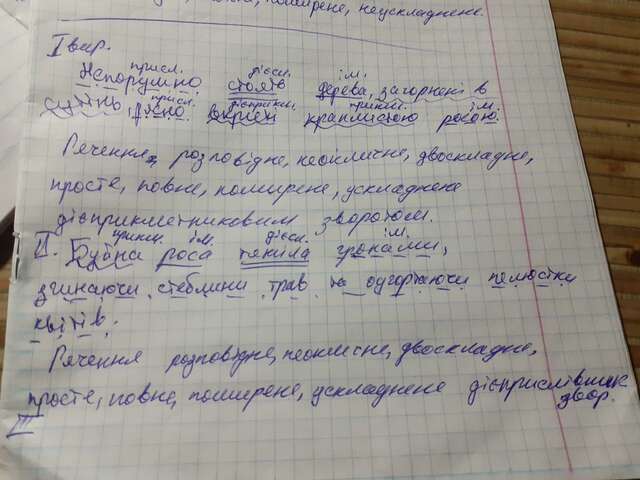 поширене, неускладнене.
I вар.
присл. дієсл. ім.
Непорушно стоять дерева, загорнені в
присл. дієприкм. прикм. ім.
сутінь, рясно вкриті краплистою росою.
Речення, розповідне, неокличне, двоскладне,
просте, повне, поширене, ускладнене
дієприкметниковим зворотом.
прикм. ім. дієсл. ім.
II. Буйна роса тяжіла гронами,
згинаючи стеблини трав та одгортаючи пелюстки
квітів.
Речення розповідне, неоклитне, двоскладне,
просте, повне, поширене, ускладнене дієприслівник
звор.
III